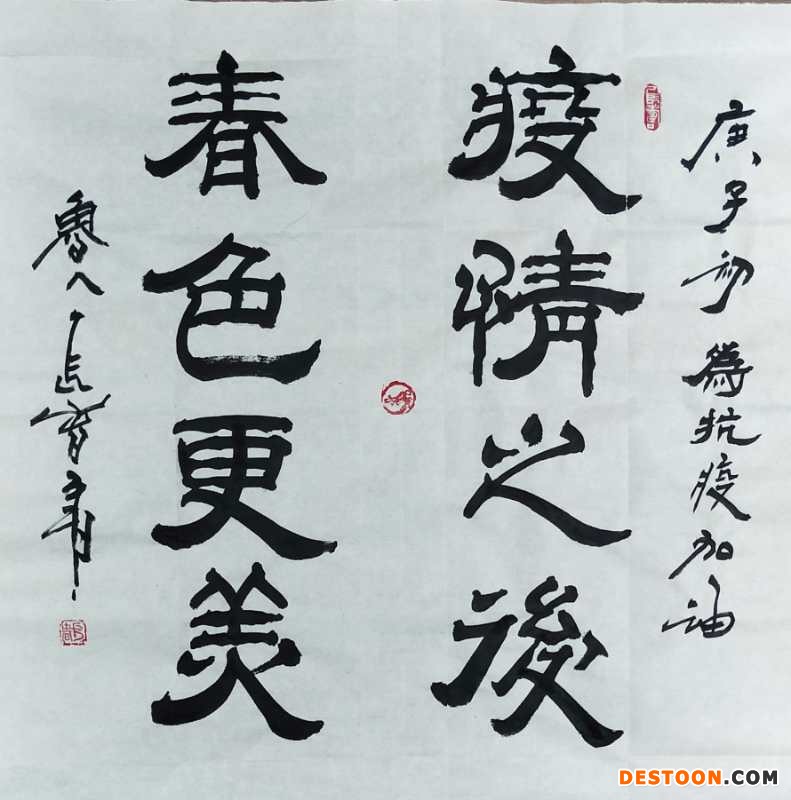 庚子初為抗疫加油
疫情之後
春色更美
魯人
DESTOON.COM